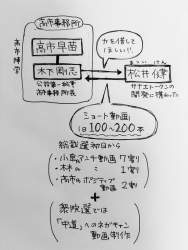 高市事務所
高市早苗
高市陣営
木下剛志
公設第一秘書
高市事務所長
力を貸して
ほしい!!
まつい けん
松井 健
サナエトークンの
開発に携わった
ショート動画
1日100~200本
総裁選初日から
・小泉アンチ動画 7割
・林の 〃 1割
・高市のポジティブ
動画 2割
+
衆院選では
「中道」へのネガキャン
動画制作